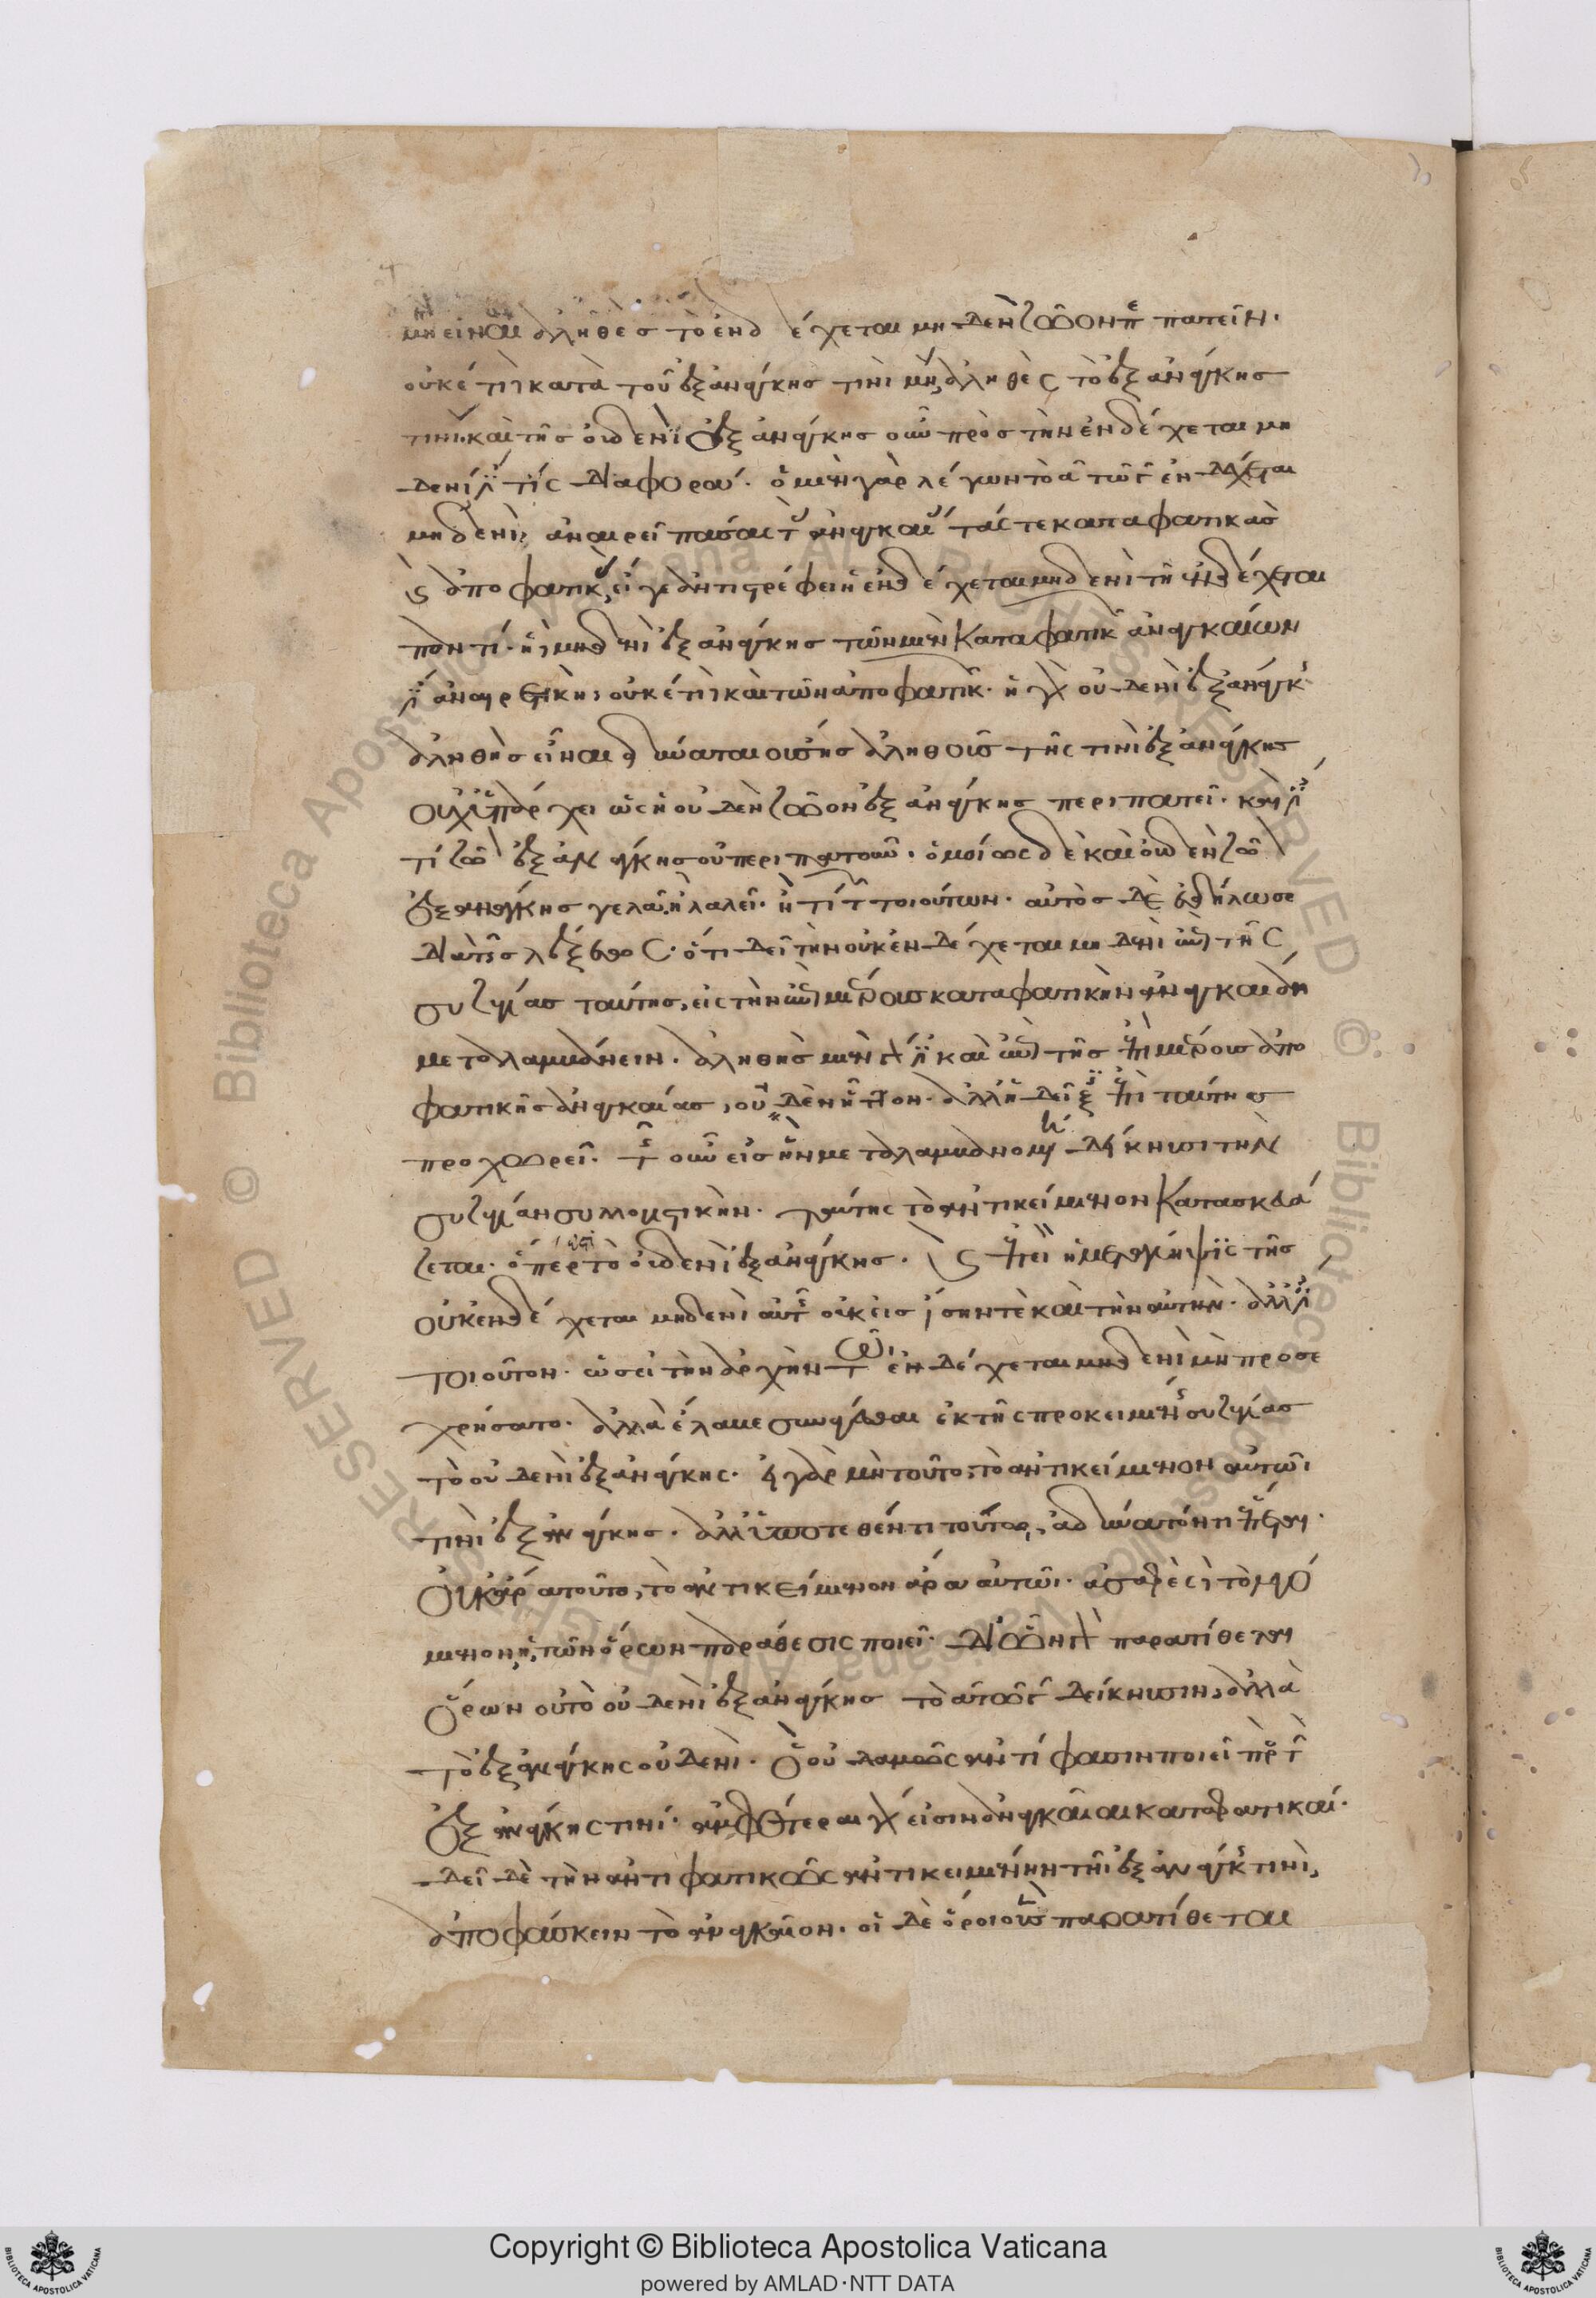 μὴ εἶναι ἀληθὲς τὸ ἐνδέχεται μηδὲν ζῶον πε πατεῖν.
οὐκέτι κατὰ τοῦ ἐξ ἀνάγκης τινὶ μὴ, ἀληθὲς τὸ ἐξ ἀνάγκης
τινί. καὶ τῆς οὐδενὶ ἐξ ἀνάγκης οὖν πρὸς τὴν ἐνδέχεται μη
δενί ἐστί τίς διαφορά. ὁ μὲν γὰρ λέγων τὸ α τῶ γ ἐνδέχεται
μηδενὶ, ἀναιρεῖ πάσας τὰς ἀναγκαίας τάς τε καταφατικὰς
καὶ ἀποφατικάς, εἴ γε ἀντιστρέφει ἡ ἐνδέχεται μηδενὶ τῇ ἐνδέχεται
παντί. ἡ μηδενὶ ἐξ ἀνάγκης τῶν μὲν καταφατικῶν ἀναγκαίων
ἐστὶν ἀναιρετικὴ, οὐκέτι καὶ τῶν ἀποφατικῶν. ἡ γὰρ οὐδενὶ ἐξ ἀνάγκης
ἀληθὴς εἶναι δύναται οὔσης ἀληθοῦς τῆς τινὶ ἐξ ἀνάγκης
οὐχ ὑπάρχει ὡς ἡ οὐδὲν ζῶον ἐξ ἀνάγκης περιπατεῖ. καί ἐστί
τί ζῶον ἐξ ἀνάγκης οὐ περιπατοῦν. ὁμοίως δὲ καὶ οὐδὲν ζῶον
ἐξ ἀνάγκης γελᾶ, ἢ λαλεῖ. ἤ τί τῶν τοιούτων. αὐτὸς δὲ ἐδήλωσε
διὰ τῆς λέξεως. ὅτι δεῖ τὴν οὐκ ἐνδέχεται μηδενὶ ἐπὶ τῆς
συζυγίας ταύτης, εἰς τὴν ἐπὶ μέρους καταφατικὴν ἀναγκαίαν
μεταλαμβάνειν. ἀληθὴς μὲν γάρ ἐστι καὶ ἐπὶ τῆς ἐπὶ μέρους ἀπο
φατικῆς ἀναγκαίας, οὐδὲν ἧττον. ἀλλ' ἡ δεῖξις ἐπὶ ταύτης
προχωρεῖ. τῶν οὖν εἰς ἣν μεταλαμβανομένην δείκνυσι τὴν
συζυγίαν συλλογιστικήν. ταύτης τὸ ἀντικείμενον κατασκευά
ζεται. ὅπερ ἐστὶ τὸ οὐδενὶ ἐξ ἀνάγκης. καὶ ἐπεὶ ἡ μετάληψις τῆς
οὐκ ἐνδέχεται μηδενὶ αὐτῶν οὐκ εἰς ἴσην τὲ καὶ τὴν αὐτήν. ἀλλ' ἐστὶ
τοιοῦτον. ὡς εἰ τὴν ἀρχὴν τῶ ἐνδέχεται μηδενὶ μὴ προσε
χρήσατο. ἀλλὰ ἔλαβε συνάγεσθαι ἐκ τῆς προκειμένης συζυγίας
τὸ οὐδενὶ ἐξ ἀνάγκης. εἰ γὰρ μὴ τοῦτο, τὸ ἀντικείμενον αὐτῶι
τινὶ ἐξ ἀνάγκης. ἀλλ' ὑποτεθέντι τούτω, ἀδύνατόν τι ἕπεται.
οὐκ ἄρα τοῦτο, τὸ ἀντικείμενον ἄρα αὐτῶι. ἀσαφὲς τὸ λεγό
μενον, ἡ τῶν ὅρων παράθεσις ποιεῖ. δι' ὧν γὰρ παρατίθεται
ὅρων οὐ τὸ οὐδενὶ ἐξ ἀνάγκης τὸ α τῶ γ δείκνυσιν, ἀλλὰ
τὸ ἐξ ἀνάγκης οὐδενί. ὃ οὐ λαμβὼς ἀντίφασιν ποιεῖ πρὸς τὴν
ἐξ ἀνάγκης τινί. ἀμφότεραι γὰρ εἰσὶν ἀναγκαῖαι καταφατικαί.
δεῖ δὲ τὴν ἀντιφατικῶς ἀντικειμένην τῆι ἐξ ἀνάγκης τινὶ,
ἀποφάσκειν τὸ ἀναγκαῖον. οἱ δὲ ὅροι οὓς παρατίθεται